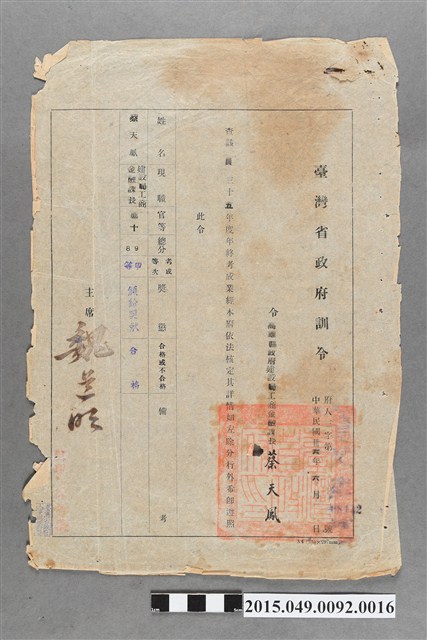 臺灣省政府訓令
府人 字第 號
中華民國卅六年六月 日
令 高雄縣政府建設局工商金融課長 蔡天鳳
查該員三十五年度年終考成業經本府依法核定其詳情如左除分行外希即遵照
此令
姓名 現職 官等 總分 考成等次 獎懲 合格或不合格 備考
蔡天鳳 建設局工商金融課長 合格
主席 魏道明
2015.049.0092.0016